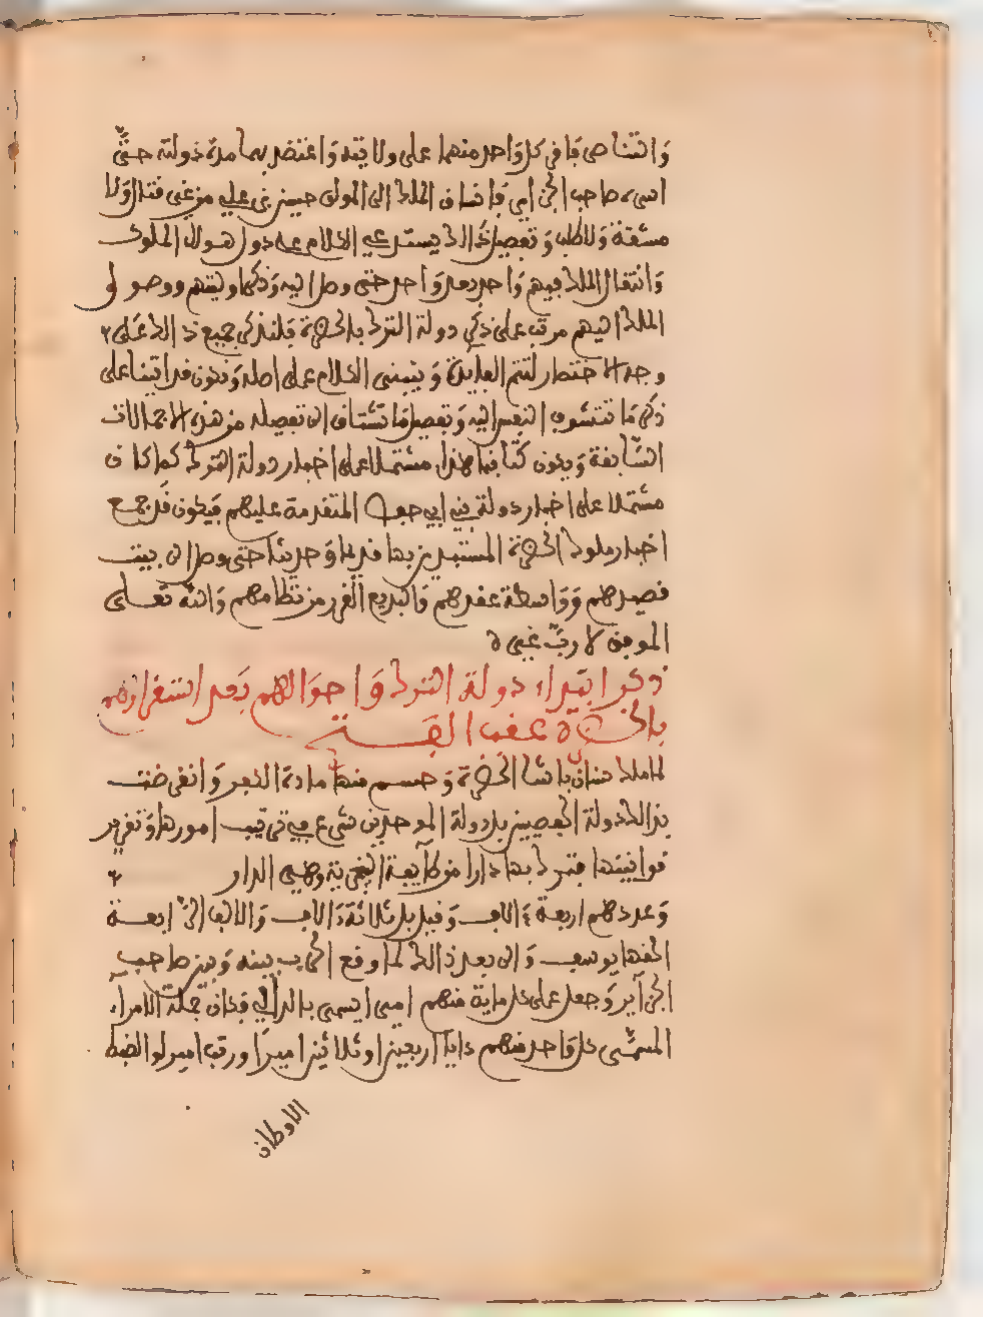 والتناصي فافى كل واحد منهما على ولايته واعتضد بها مدة دولته حتى
اسره صاحب الجزائر فانساق الملك الى المولى حسين بن علي من غير قتال ولا
مشقة ولا طلب وتفصيل ذالك يستدعي الكلام على دول هولاء الملوك
وانتقال الملك فيهم واحد بعد واحد حتى وصل اليه وذكر اوليتهم ووصول
الملك اليهم مرتب على ذكر دولة الترك بالحضرة فلنذكر جميع ذالك على
وجه الاختصار لتتم الفايدة وينبني الكلام على اصله ونكون قد اتينا على
ذكر ما تتشوف النفس اليه وتفصيل ما تشتاق الى تفصيله من هذه الاجمالات
السابقة ويكون كتابنا هذا مشتملا على اخبار دولة الترك كما كان
مشتملا على اخبار دولة بني ابي حفص المتقدمة عليهم فيكون قد جمع
اخبار ملوك الحضرة المستبدين بها قديما وحديثا حتى وصل الى بيت
قصيدهم وواسطة عقدهم والبديع الفرد من نظامهم والله تعلى
الموفق لا رب غيره
ذكر ابتداء دولة الترك واحوالهم بعد استقرارهم
بالحضرة عقب الفتح
لما ملك سنان باشا الحضرة وحسم منها مادة الكفر وانقرضت
بذالك دولة الحفصيين بل دولة الموحدين شرع في ترتيب امورها وتقرير
قوانينها فترك بها دارا من طايفة الينجرية وهي الدار
وعددهم اربعة ءالاف وقيل بل ثلاثة ءالاف والالف الرابعة
الحقها يوسف داي بعد ذالك لما وقع الحرب بينه وبين صاحب
الجزاير وجعل على كل ماية منهم اميرا يسمى بالداي فكان جملة الامراء
المسمى كل واحد منهم دايا اربعين او ثلاثين اميرا ورتب اميرا لضبط
الاوطان